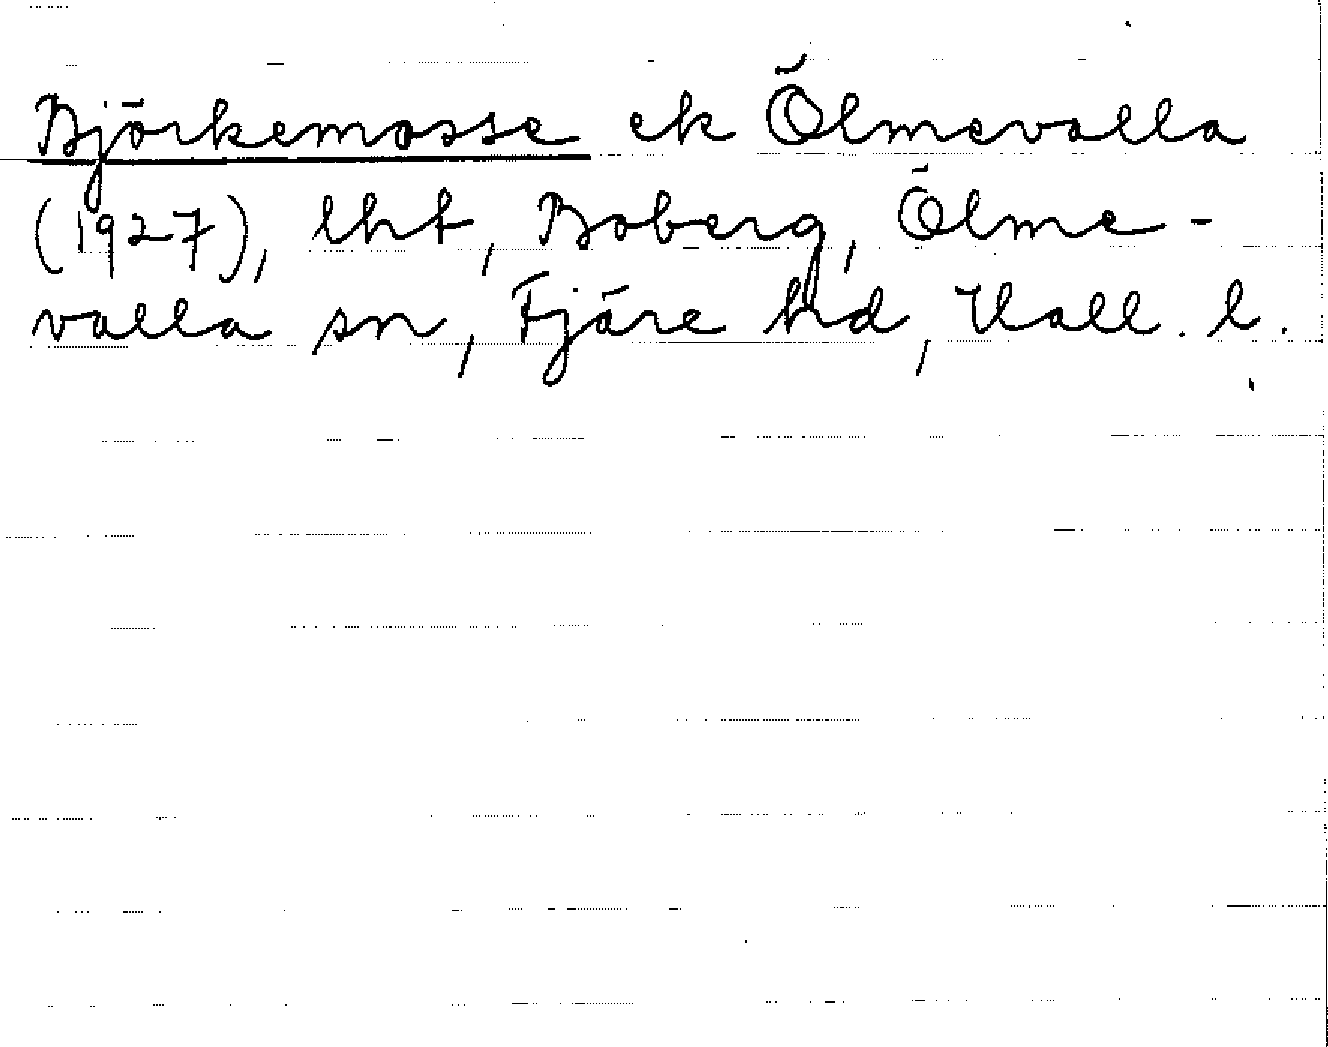 Björkemosse ek Ölmevalla
(1927), lht, Boberg, Ölme-
valla sn, Fjäre hd, Hall. l.